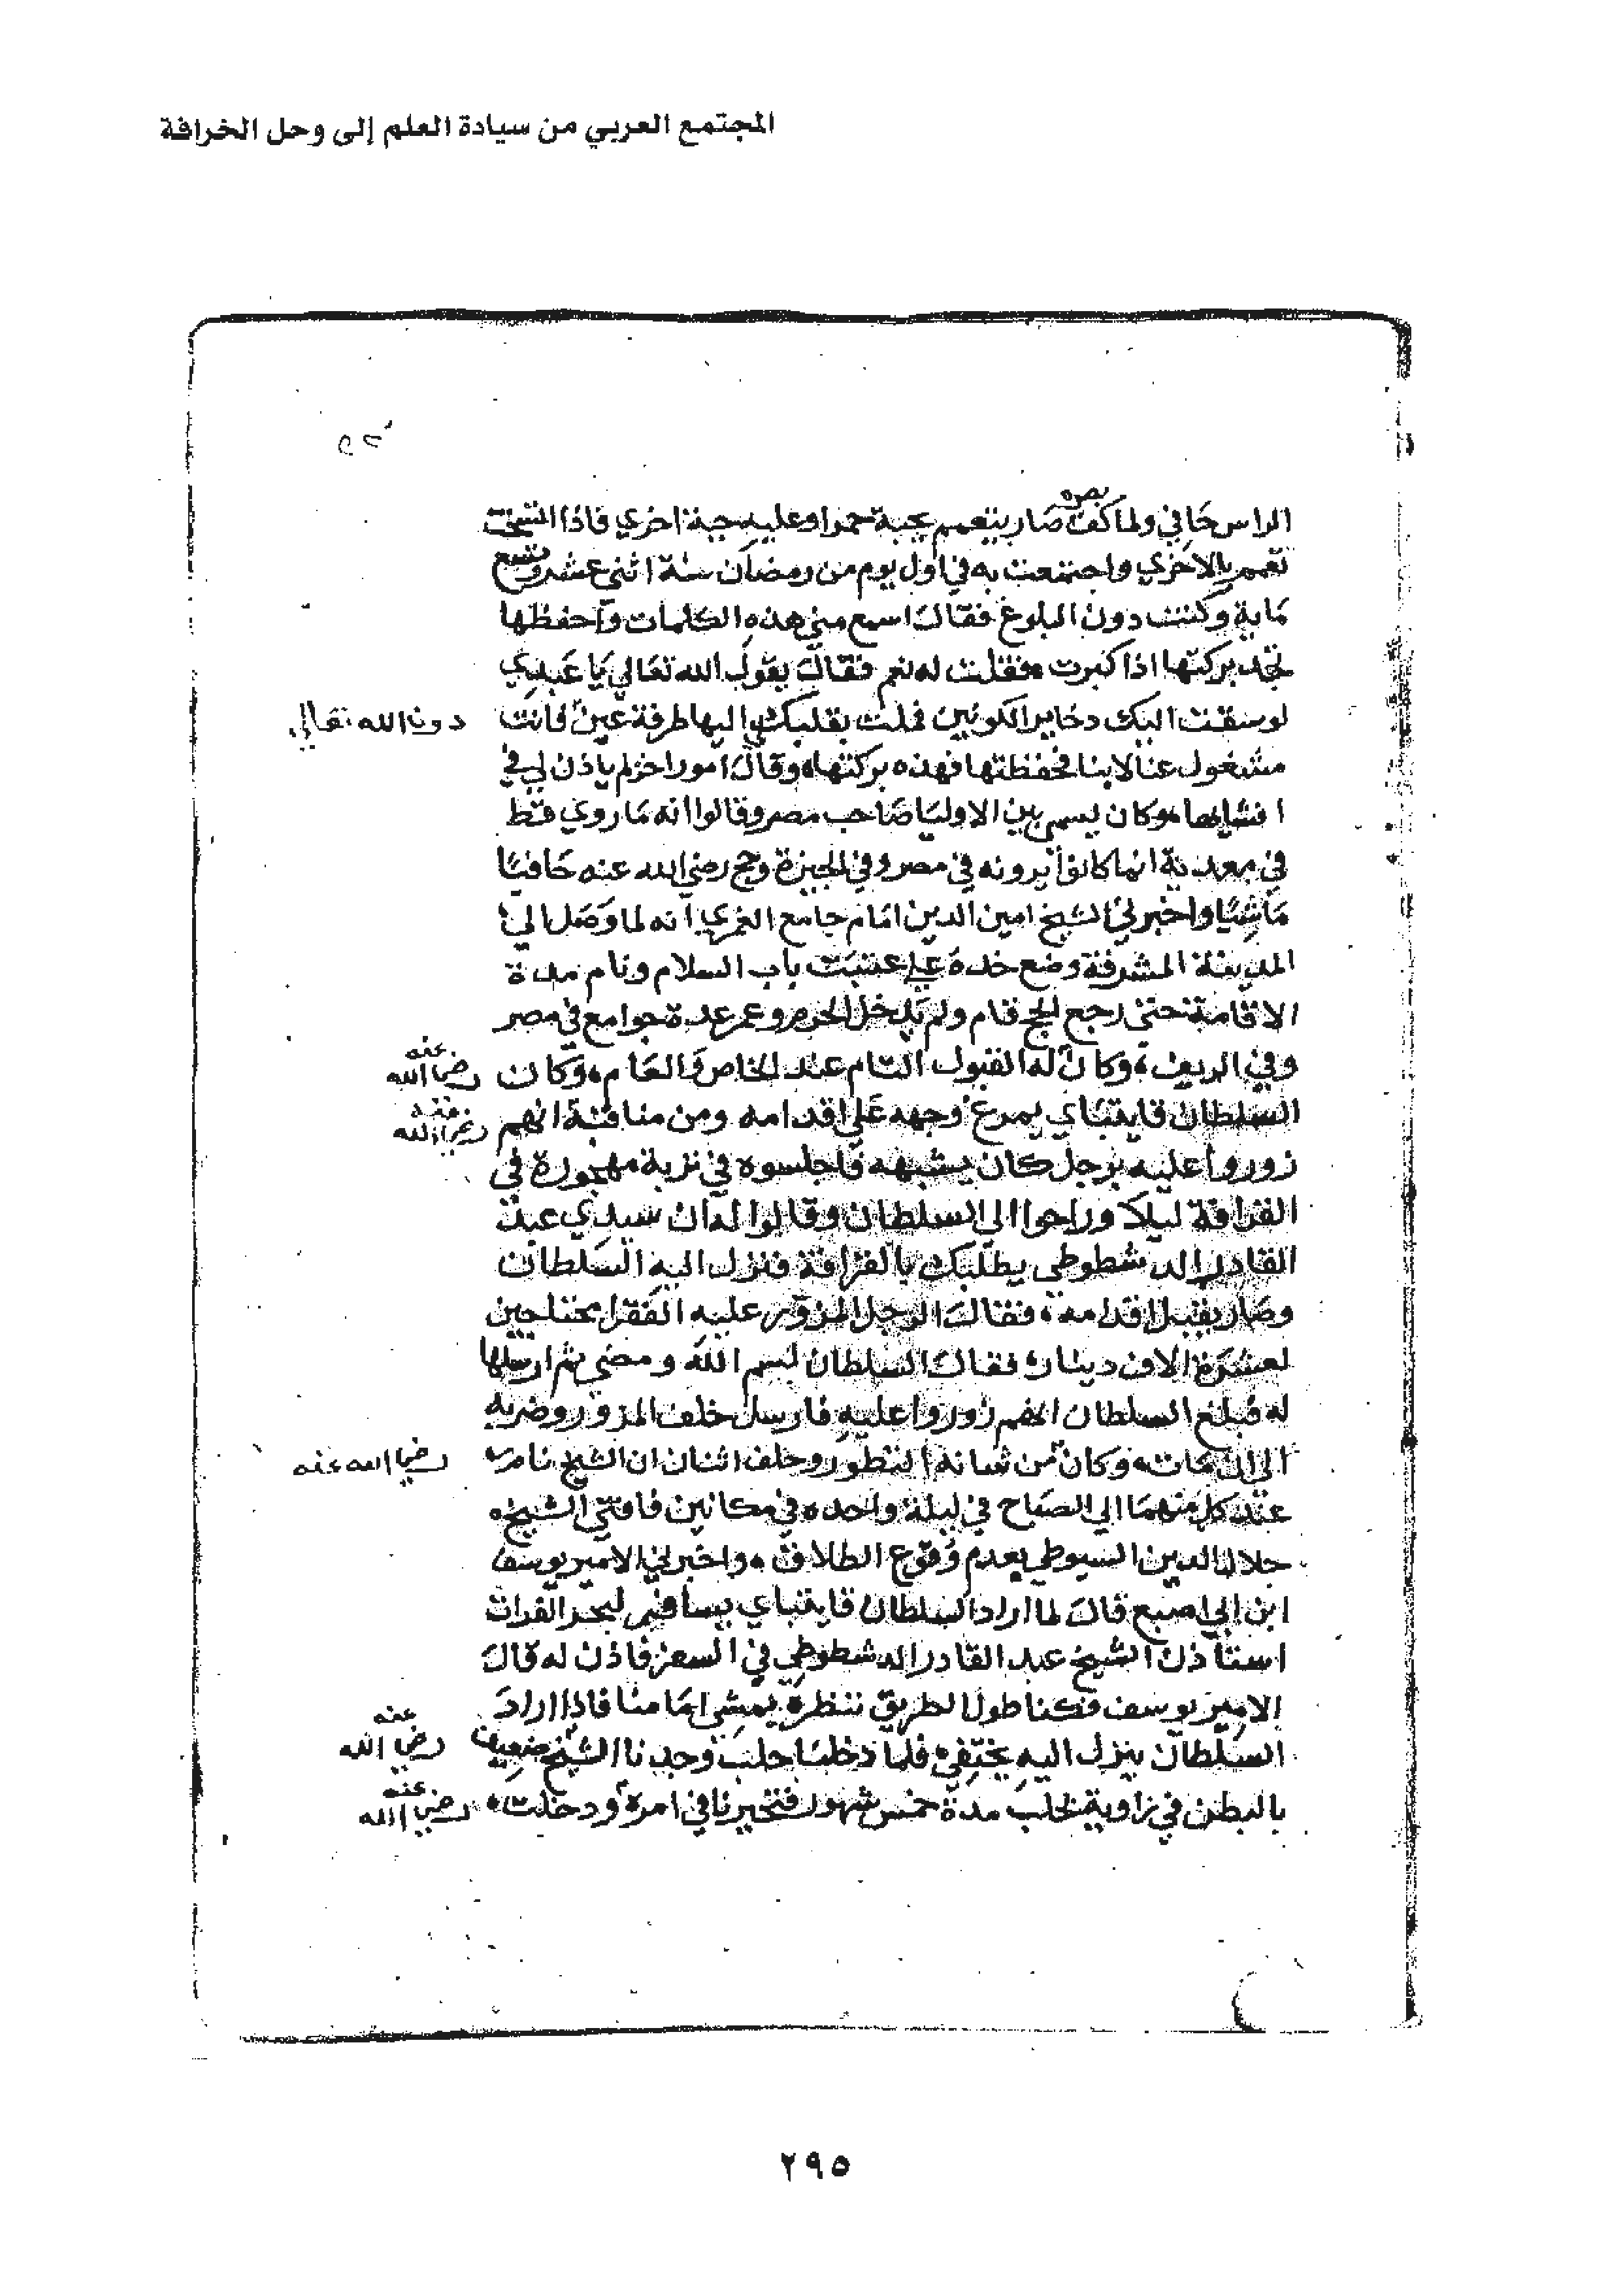 المجتمع العربي من سيادة العلم إلى وحل الخرافة
بصره
الراس حافي ولما كف صار يتعمم بجبة حمرا وعليه جبة اخري فاذا اتسخت
تعمم بالاخري واجتمعت به في اول يوم من رمضان سنة اثني عشر وتسع
ماية وكنت دون البلوغ فقال اسمع مني هذه الكلمات واحفظها
تجد بركتها اذا كبرت فقلت له نعم فقال يقول الله تعالي يا عبدي
لو سقت اليك دخاير الكونين فملت بقلبك اليها طرفة عين فانت
دون الله تعالي
مشغول عنا لا بنا فحفظتها فهذه بركتها وقال امور اخر لم ياذن لي في
افشايها وكان يسمي بين الاوليا صاحب مصر وقالوا انه ما روي قط
في معدية انما كانوا يرونه في مصر وفي الجيزة وحج رضي الله عنه حافيا
ماشيا واخبرني الشيخ امين الدين امام جامع الغمري انه لما وصل الي
المدينة المشرفة وضع خده علي عتبت باب السلام ونام مدة
الاقامة حتي رجع الحج قام ولم يدخل الحرم وعمر عدة جوامع في مصر
وفي الريف وكان له القبول التام عند الخاص والعام وكان
رضي الله عنه
السلطان قايتباي يمرغ وجهه علي اقدامه ومن مناقبة انهم
رضي الله عنه
زوروا عليه برجل كان يشبهه فاجلسوه في تربة مهجورة في
القرافة ليلا وراحوا الي السلطان وقالوا له ان سيدي عبد
القادر الدشطوطي يطلبك بالقرافة فنزل اليه السلطان
وصار يقبل اقدامه فقال الرجل المزور عليه الفقرا محتاجين
لعشرة الاف دينار فقال السلطان بسم الله ومضي ثم ارسلها
له فبلغ السلطان انهم زوروا عليه فارسل خلف المزور وضربه
الي ان مات وكان من شانه التطور وحلف اثنان ان الشيخ نام
رضي الله عنه
عند كل منهما الي الصباح في ليلة واحده في مكانين فافتي الشيخ
جلال الدين السيوطي بعدم وقوع الطلاق واخبرني الامير يوسف
ابن ابي اصبع قال لما اراد السلطان قايتباي يسافر لبحر الفرات
استاذن الشيخ عبد القادر الدشطوطي في السفر فاذن له قال
الامير يوسف فكنا طول الطريق ننظره يمشي امامنا فاذا اراد
السلطان ينزل اليه يختفي فلما دخلنا حلب وجدنا الشيخ ضعيف
رضي الله عنه
بالبطن في زاوية بحلب مدة خمس شهور فتحيرنا في امره ودخلت
رضي الله عنه
٢٩٥